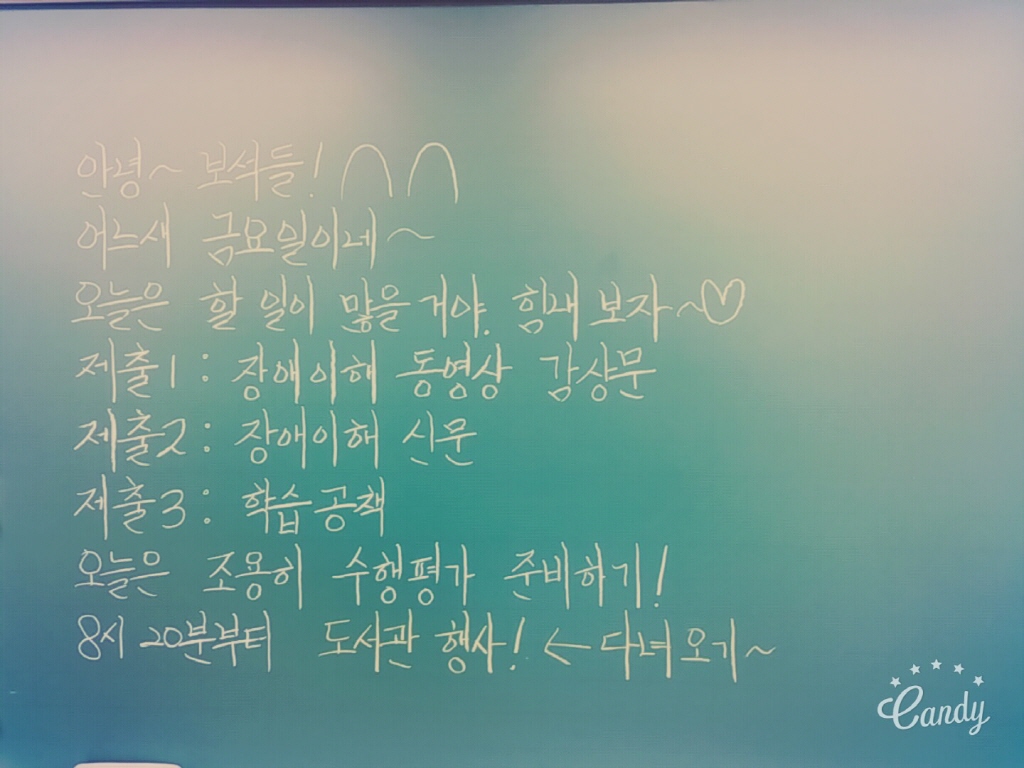 안녕~ 보석들! ∩∩
어느새 금요일이네~
오늘은 할 일이 많을 거야. 힘내 보자~♡
제출1 : 장애이해 동영상 감상문
제출2 : 장애이해 신문
제출3 : 학습공책
오늘은 조용히 수행평가 준비하기!
8시 20분부터 도서관 행사! ← 다녀오기~
Candy